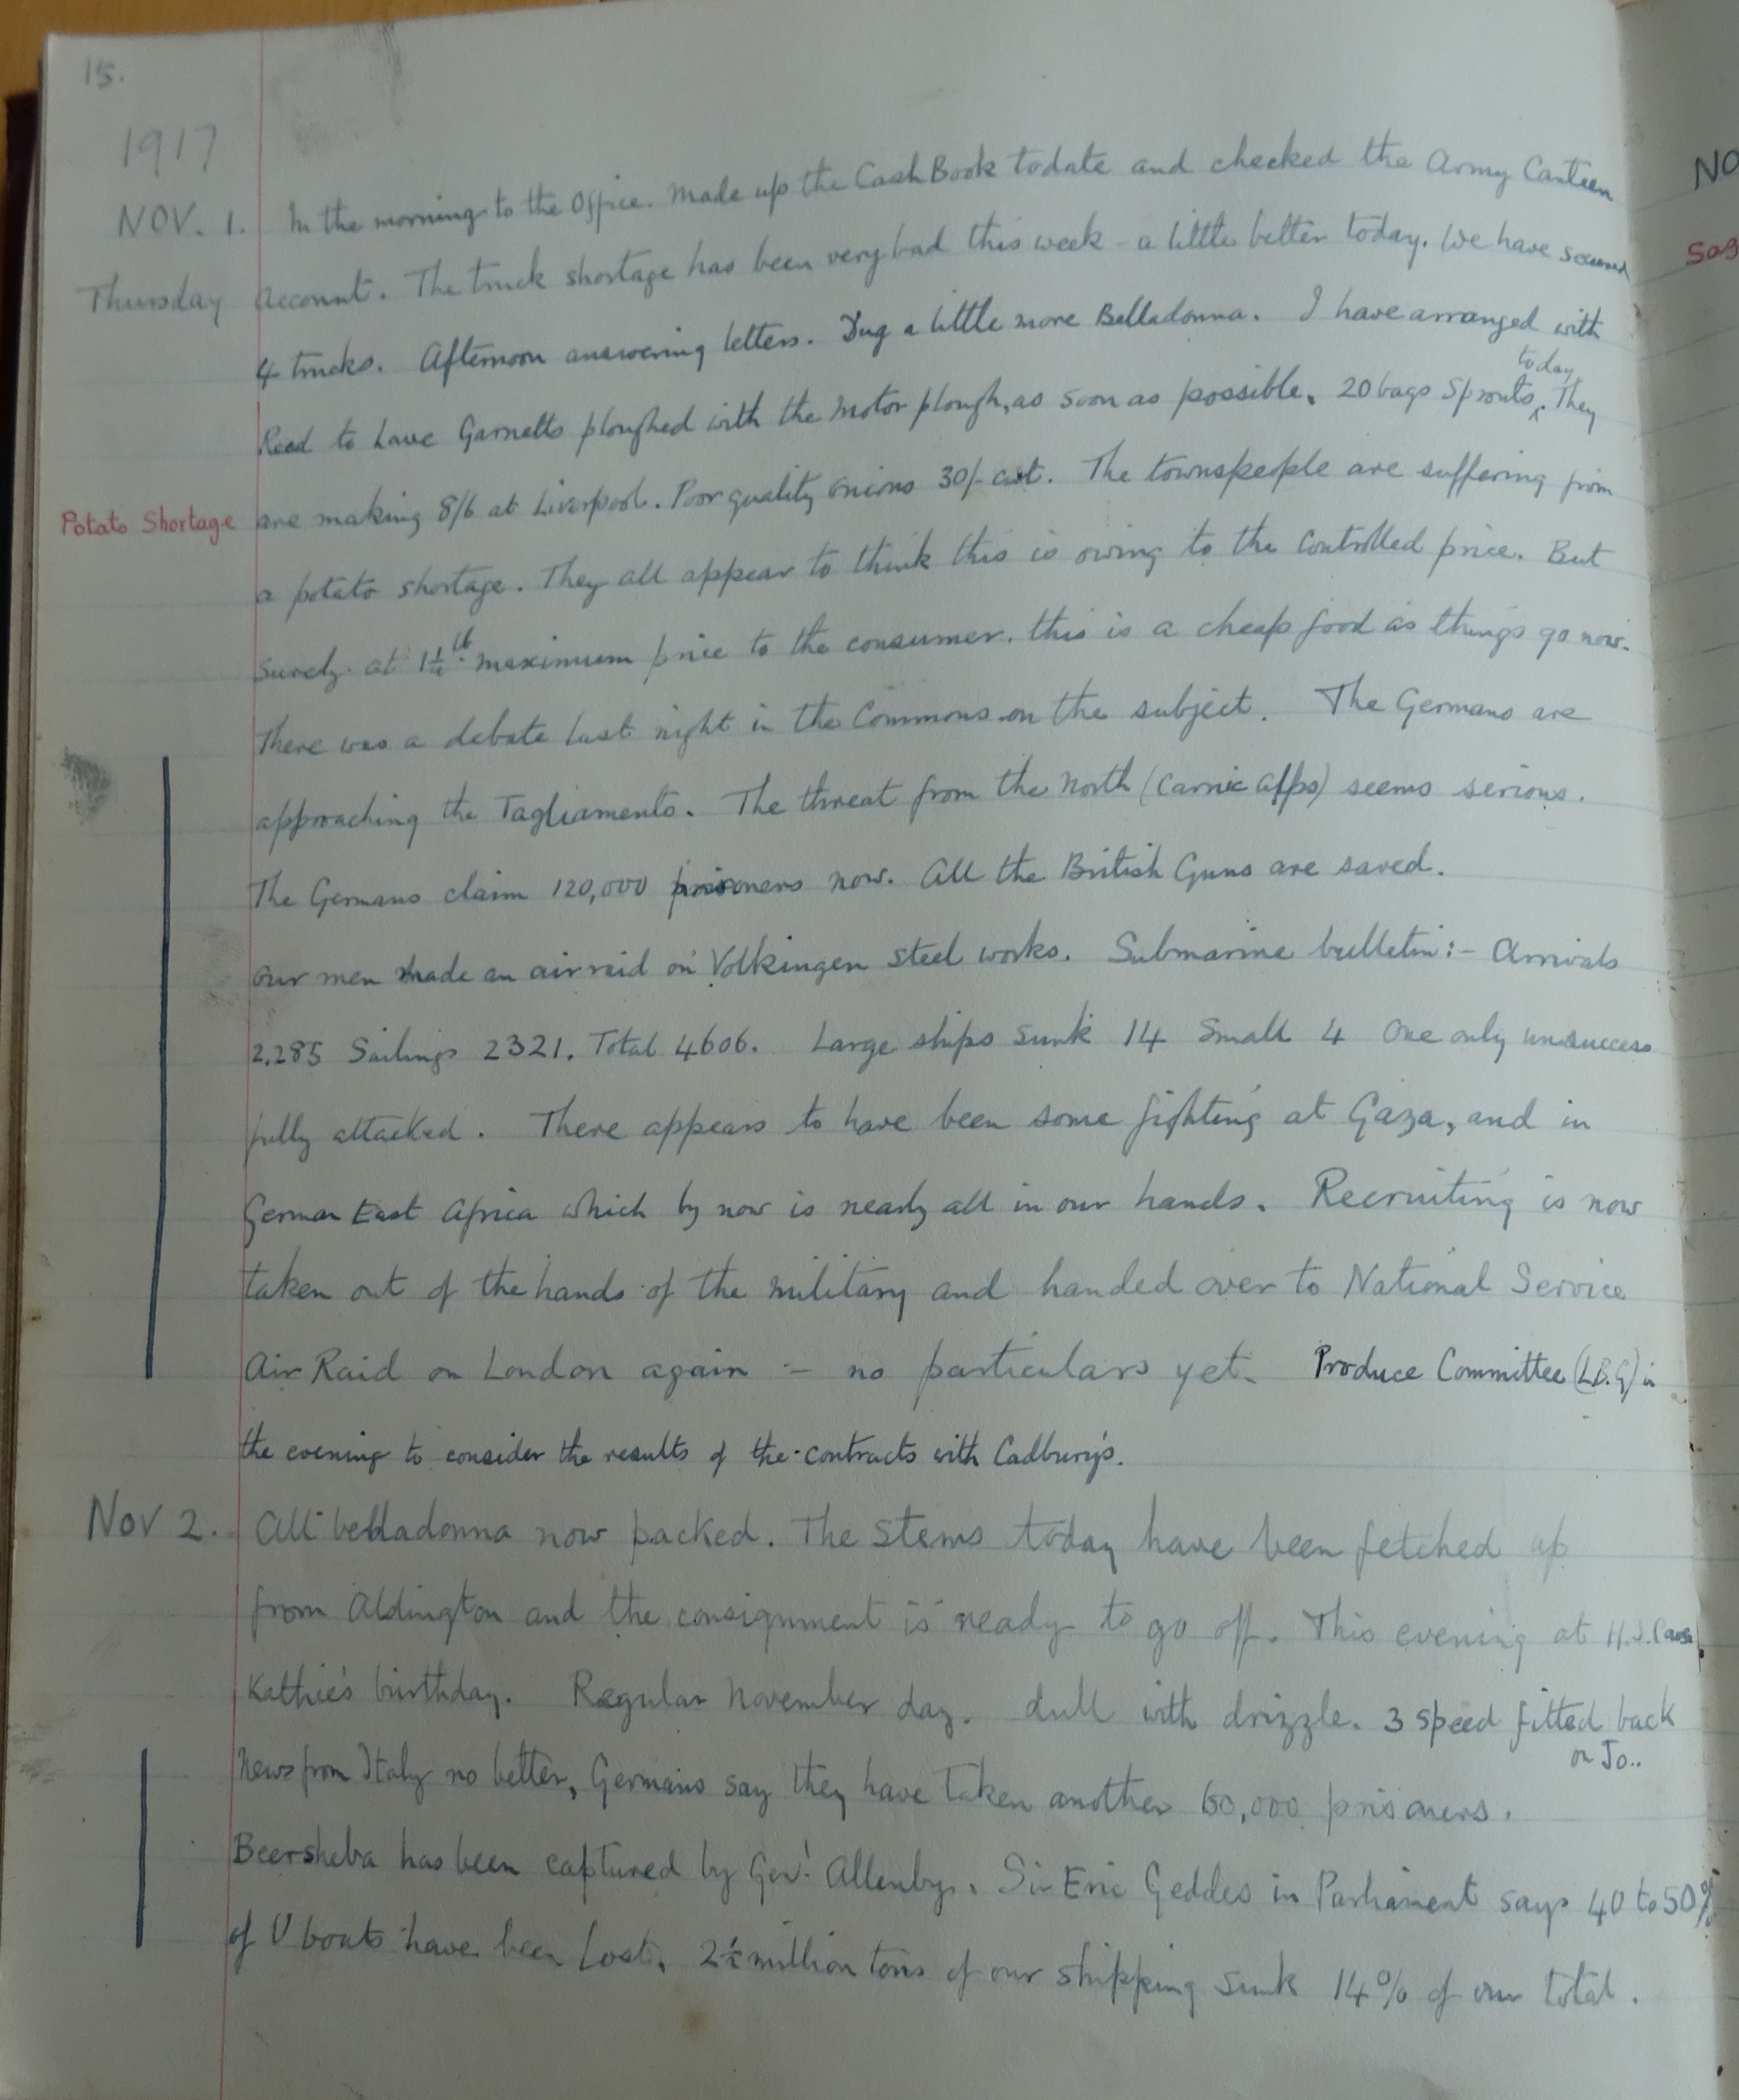 15.
1917
NOV. 1. In the morning to the Office. Made up the Cash Book todate and checked the Army Canteen
Thursday Account. The truck shortage has been very bad this week - a little better today. We have secured
4 trucks. Afternoon answering letters. Dug a little more Belladonna. I have arranged with
today
Read to have Garnetts ploughed with the Motor plough, as soon as possible. 20 bags Sprouts ‸. They
Potato Shortage are making 8/6 at Liverpool. Poor quality onions 30/- cwt. The townspeople are suffering from
a potato shortage. They all appear to think this is owing to the controlled price. But
surely at 1¼ lb. maximum price to the consumer, this is a cheap food as things go now.
There was a debate last night in the Commons on the subject. The Germans are
approaching the Tagliamento. The threat from the North (Carnic Alps) seems serious.
The Germans claim 120,000 prisoners now. All the British Guns are saved.
Our men made an air raid on Volkingen steel works. Submarine bulletin:- Arrivals
2,285 Sailings 2321. Total 4606. Large ships sunk 14 Small 4 One only unsuccess
fully attacked. There appears to have been some fighting at Gaza, and in
German East Africa which by now is nearly all in our hands. Recruiting is now
taken out of the hands of the military and handed over to National Service
Air Raid on London again - no particulars yet. Produce Committee (L.B.G) in
the evening to consider the results of the contracts with Cadbury's.
Nov 2. All belladonna now packed. The Stems today have been fetched up
from Aldington and the consignment is ready to go off. This evening at H.J.
Kathie's birthday. Regular November day. dull with drizzle. 3 speed fitted back
on Jo..
News from Italy no better, Germans say they have taken another 60,000 prisoners.
Beersheba has been captured by Genl. Allenby. Sir Eric Geddes in Parliament says 40 to 50%
of U boats have been lost. 2½ million tons of our shipping sunk 14% of our total.
NO